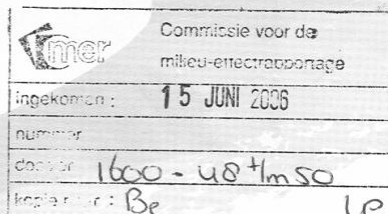 mer
Commissie voor de
milieu-effectrapportage
ingekomen : 15 JUNI 2006
nummer
dossier 1600 - 48 t/m 50
kopie naar : Be